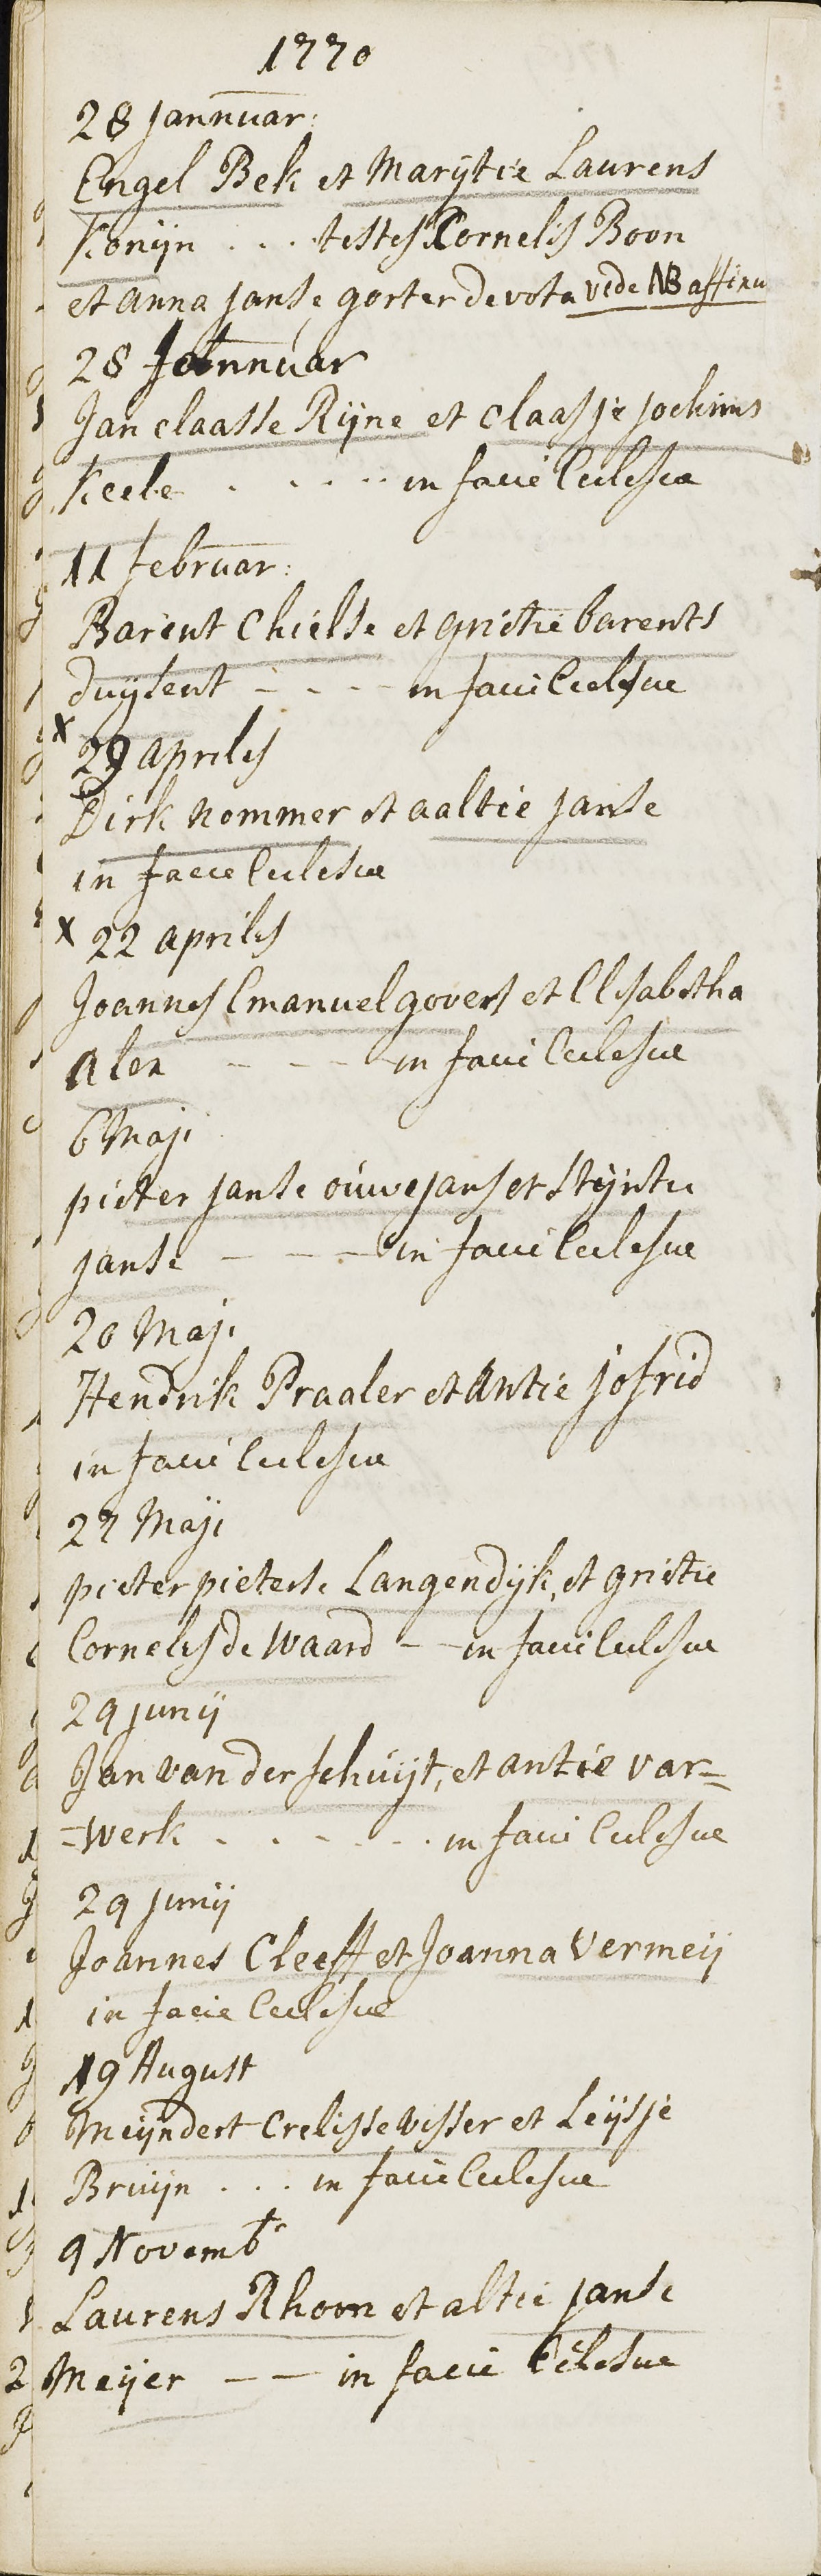 1770
28 Jannuar:
Engel Bek et Marijtie Laurens
Konijn . . . testes Cornelis Boon
et anna janse gorter devota vide NB affinu
28 Jannuar
Jan claasse Rijne et claasje jochims
Keele . . . . . in facie Ecclesiae
11 februar:
Barent Chielse et grietie barents
duijsent - - - - in facie Ecclesiae
x
29 aprilis
Dirk nommer et aaltie janse
in facie Ecclesiae
x 22 aprilis
Joannes Emanuel govers et Elisabetha
Alen - - - in facie Ecclesiae
6 Maji
pieter janse ouwejans et Stijntie
janse - - - in facie Ecclesiae
20 Maji
Hendrik Praaler et Antie josrid
in facie Ecclesiae
27 Maji
pieter pieterse Langendijk, et grietie
Cornelis de Waard - - in facie Ecclesiae
29 junij
Jan van der schuijt, et antie var=
=werk . . - - - . . in facie Ecclesiae
29 junij
Joannes Cleeff et Joanna Vermeij
in facie Ecclesiae
19 August
Meijndert Crelisse visser et Leijsje
Bruijn . . . in facie Ecclesiae
9 Novembr
Laurens Rhoon et altie janse
Meijer - - in facie Eclesiae